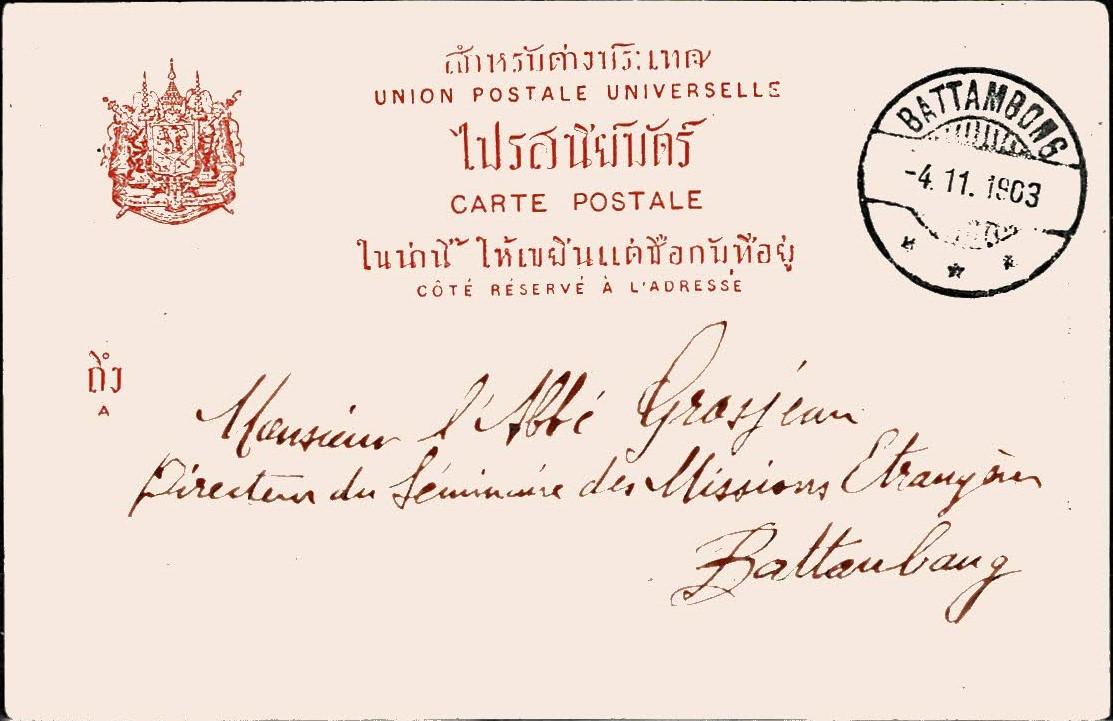 สำหรับต่างประเทศ
UNION POSTALE UNIVERSELLE
ไปรสนียบัตร์
CARTE POSTALE
ในน่านี้ ให้เขยีนแต่ชื่อกับที่อยู่
CÔTÉ RÉSERVÉ À L'ADRESSE
BATTAMBONG
-4.11.1903
ถึง
A
Monsieur l'Abbé Grosjean
Directeur du Séminaire des Missions Etrangères
Battanbang